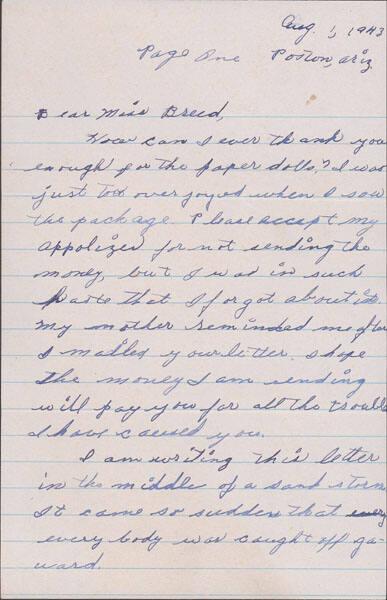 Aug. 1, 1943
Page One Poston, Ariz.
Dear Miss Breed,
How can I ever thank you
enough for the paper dolls? I was
just too overjoyed when I saw
the package. Please accept my
appolizes for not sending the
money, but I was in such
haste that I forgot about it.
My mother reminded me after
I mailed your letter. I hope
the money I am sending
will pay you for all the trouble
I have caused you.
I am writing this letter
in the middle of a sand storm
It came so sudden that
every body was caught off ga-
uard.